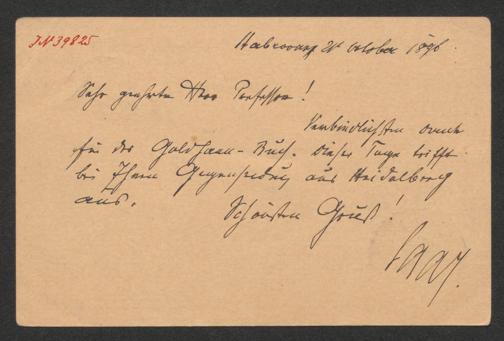 JN 39825
21 October 1896.
Sehr geehrter Herr Professor!
Verbindlichsten Dank
für das Goldhaan-Buch. Dieser Tage trifft
bei Ihnen Gegensendung aus Heidelberg
aus.
Schönsten Gruß!